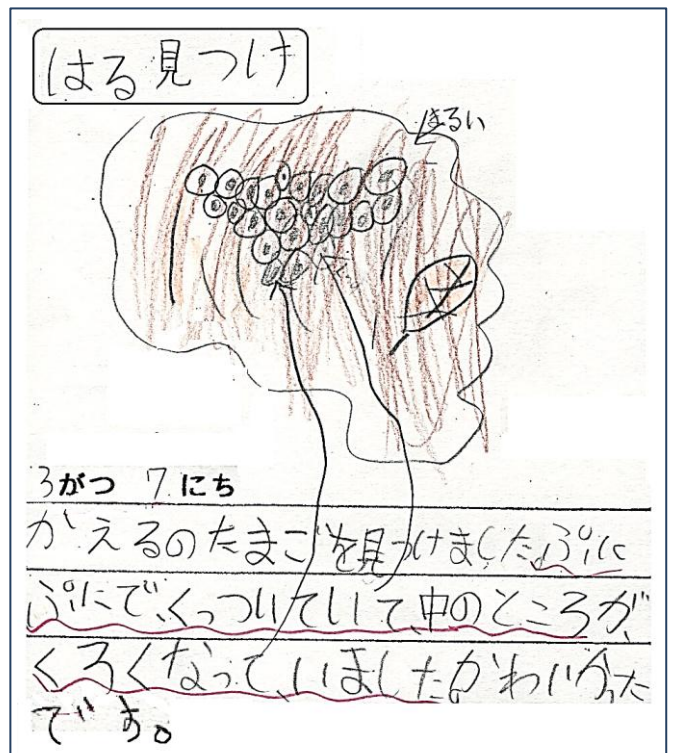 はる見つけ
まるい
3がつ 7にち
かえるのたまごを見つけました。ぷに
ぷにで、くっついていて、中のところが、
くろくなって、いました。かわいかった
です。